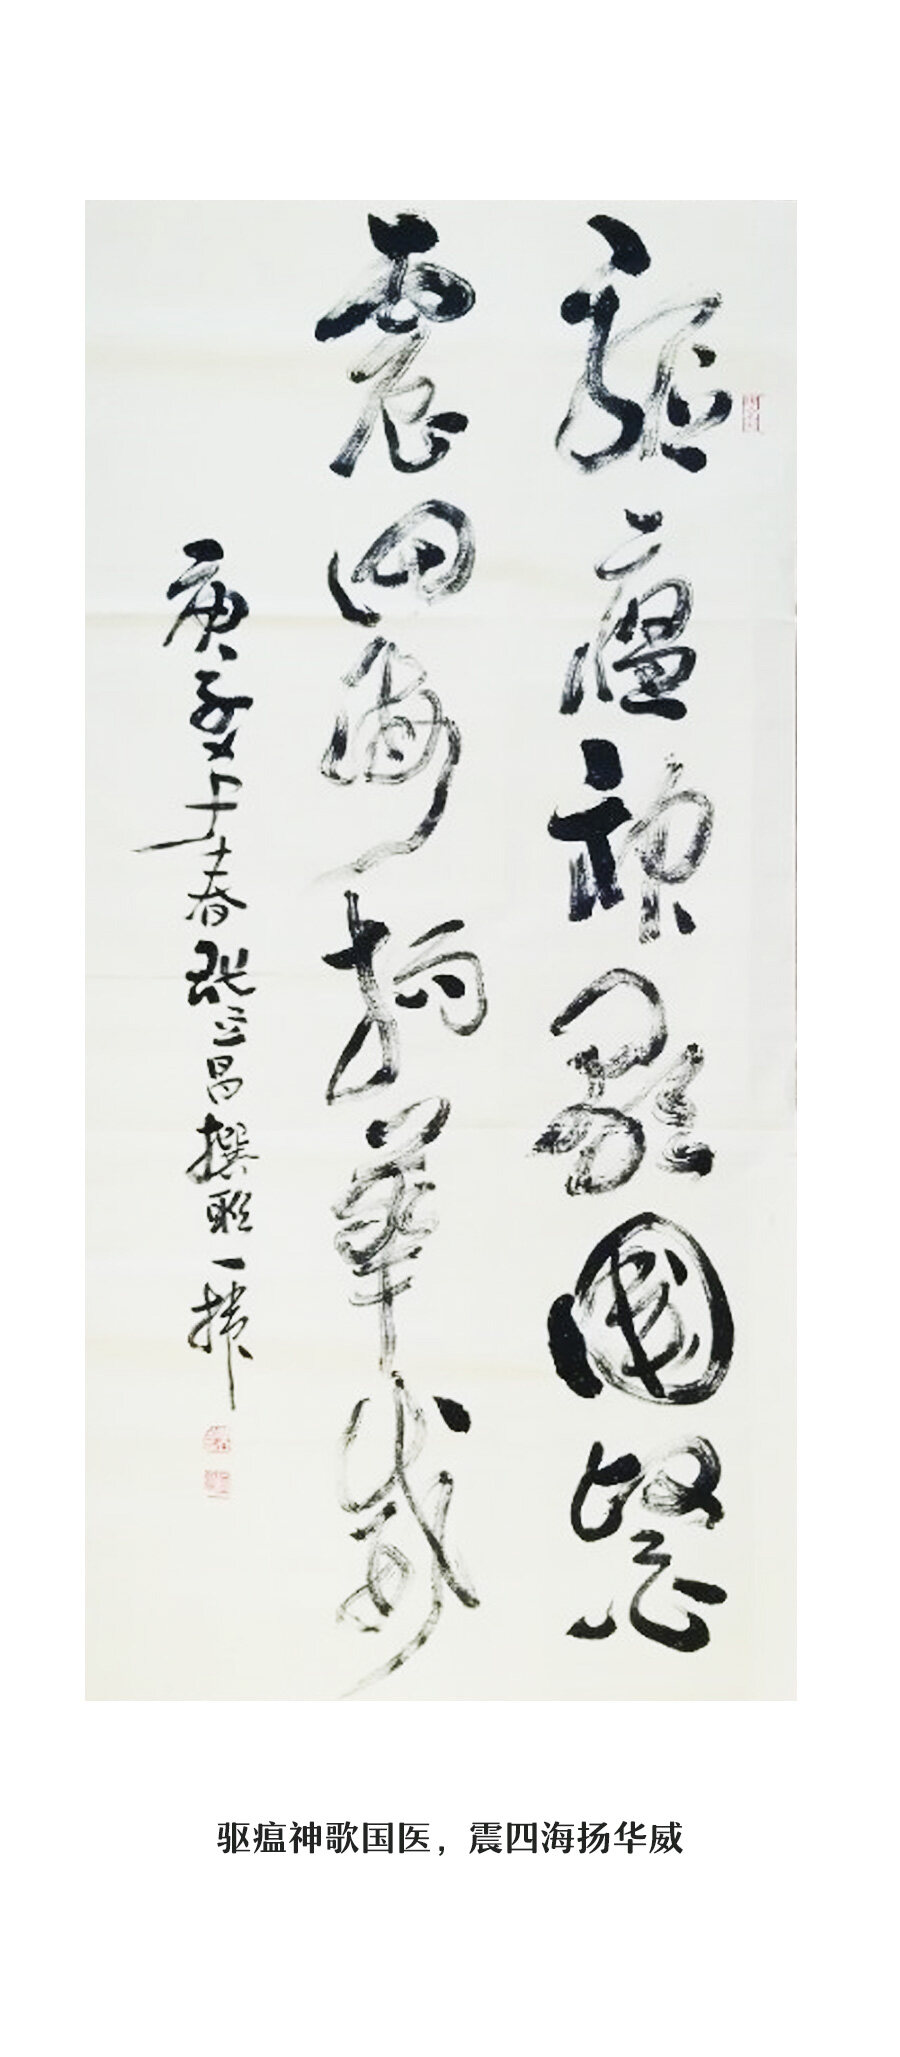 驅瘟神歌國醫
震四海揚華威
庚子年春昌撰聯一
驱瘟神歌国医，震四海扬华威